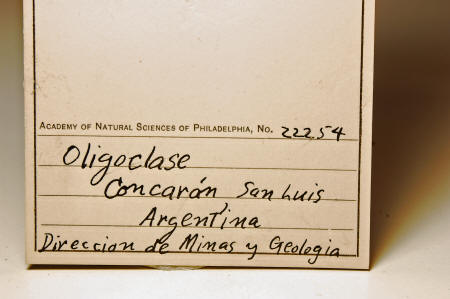 ACADEMY OF NATURAL SCIENCES OF PHILADELPHIA, NO. 22254
Oligoclase
Concarán San Luis
Argentina
Direccion de Minas y Geologia